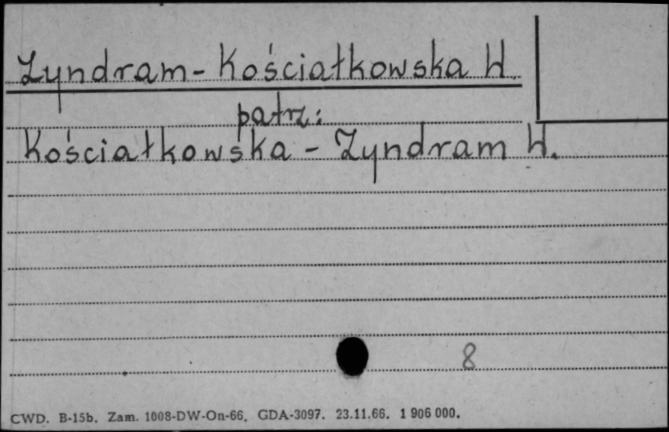 Zyndram-Kościałkowska W.
patrz:
Kościałkowska - Zyndram W.
8
CWD. B-15b. Zam. 1008-DW-On-66. GDA-3097. 23.11.66. 1 906 000.